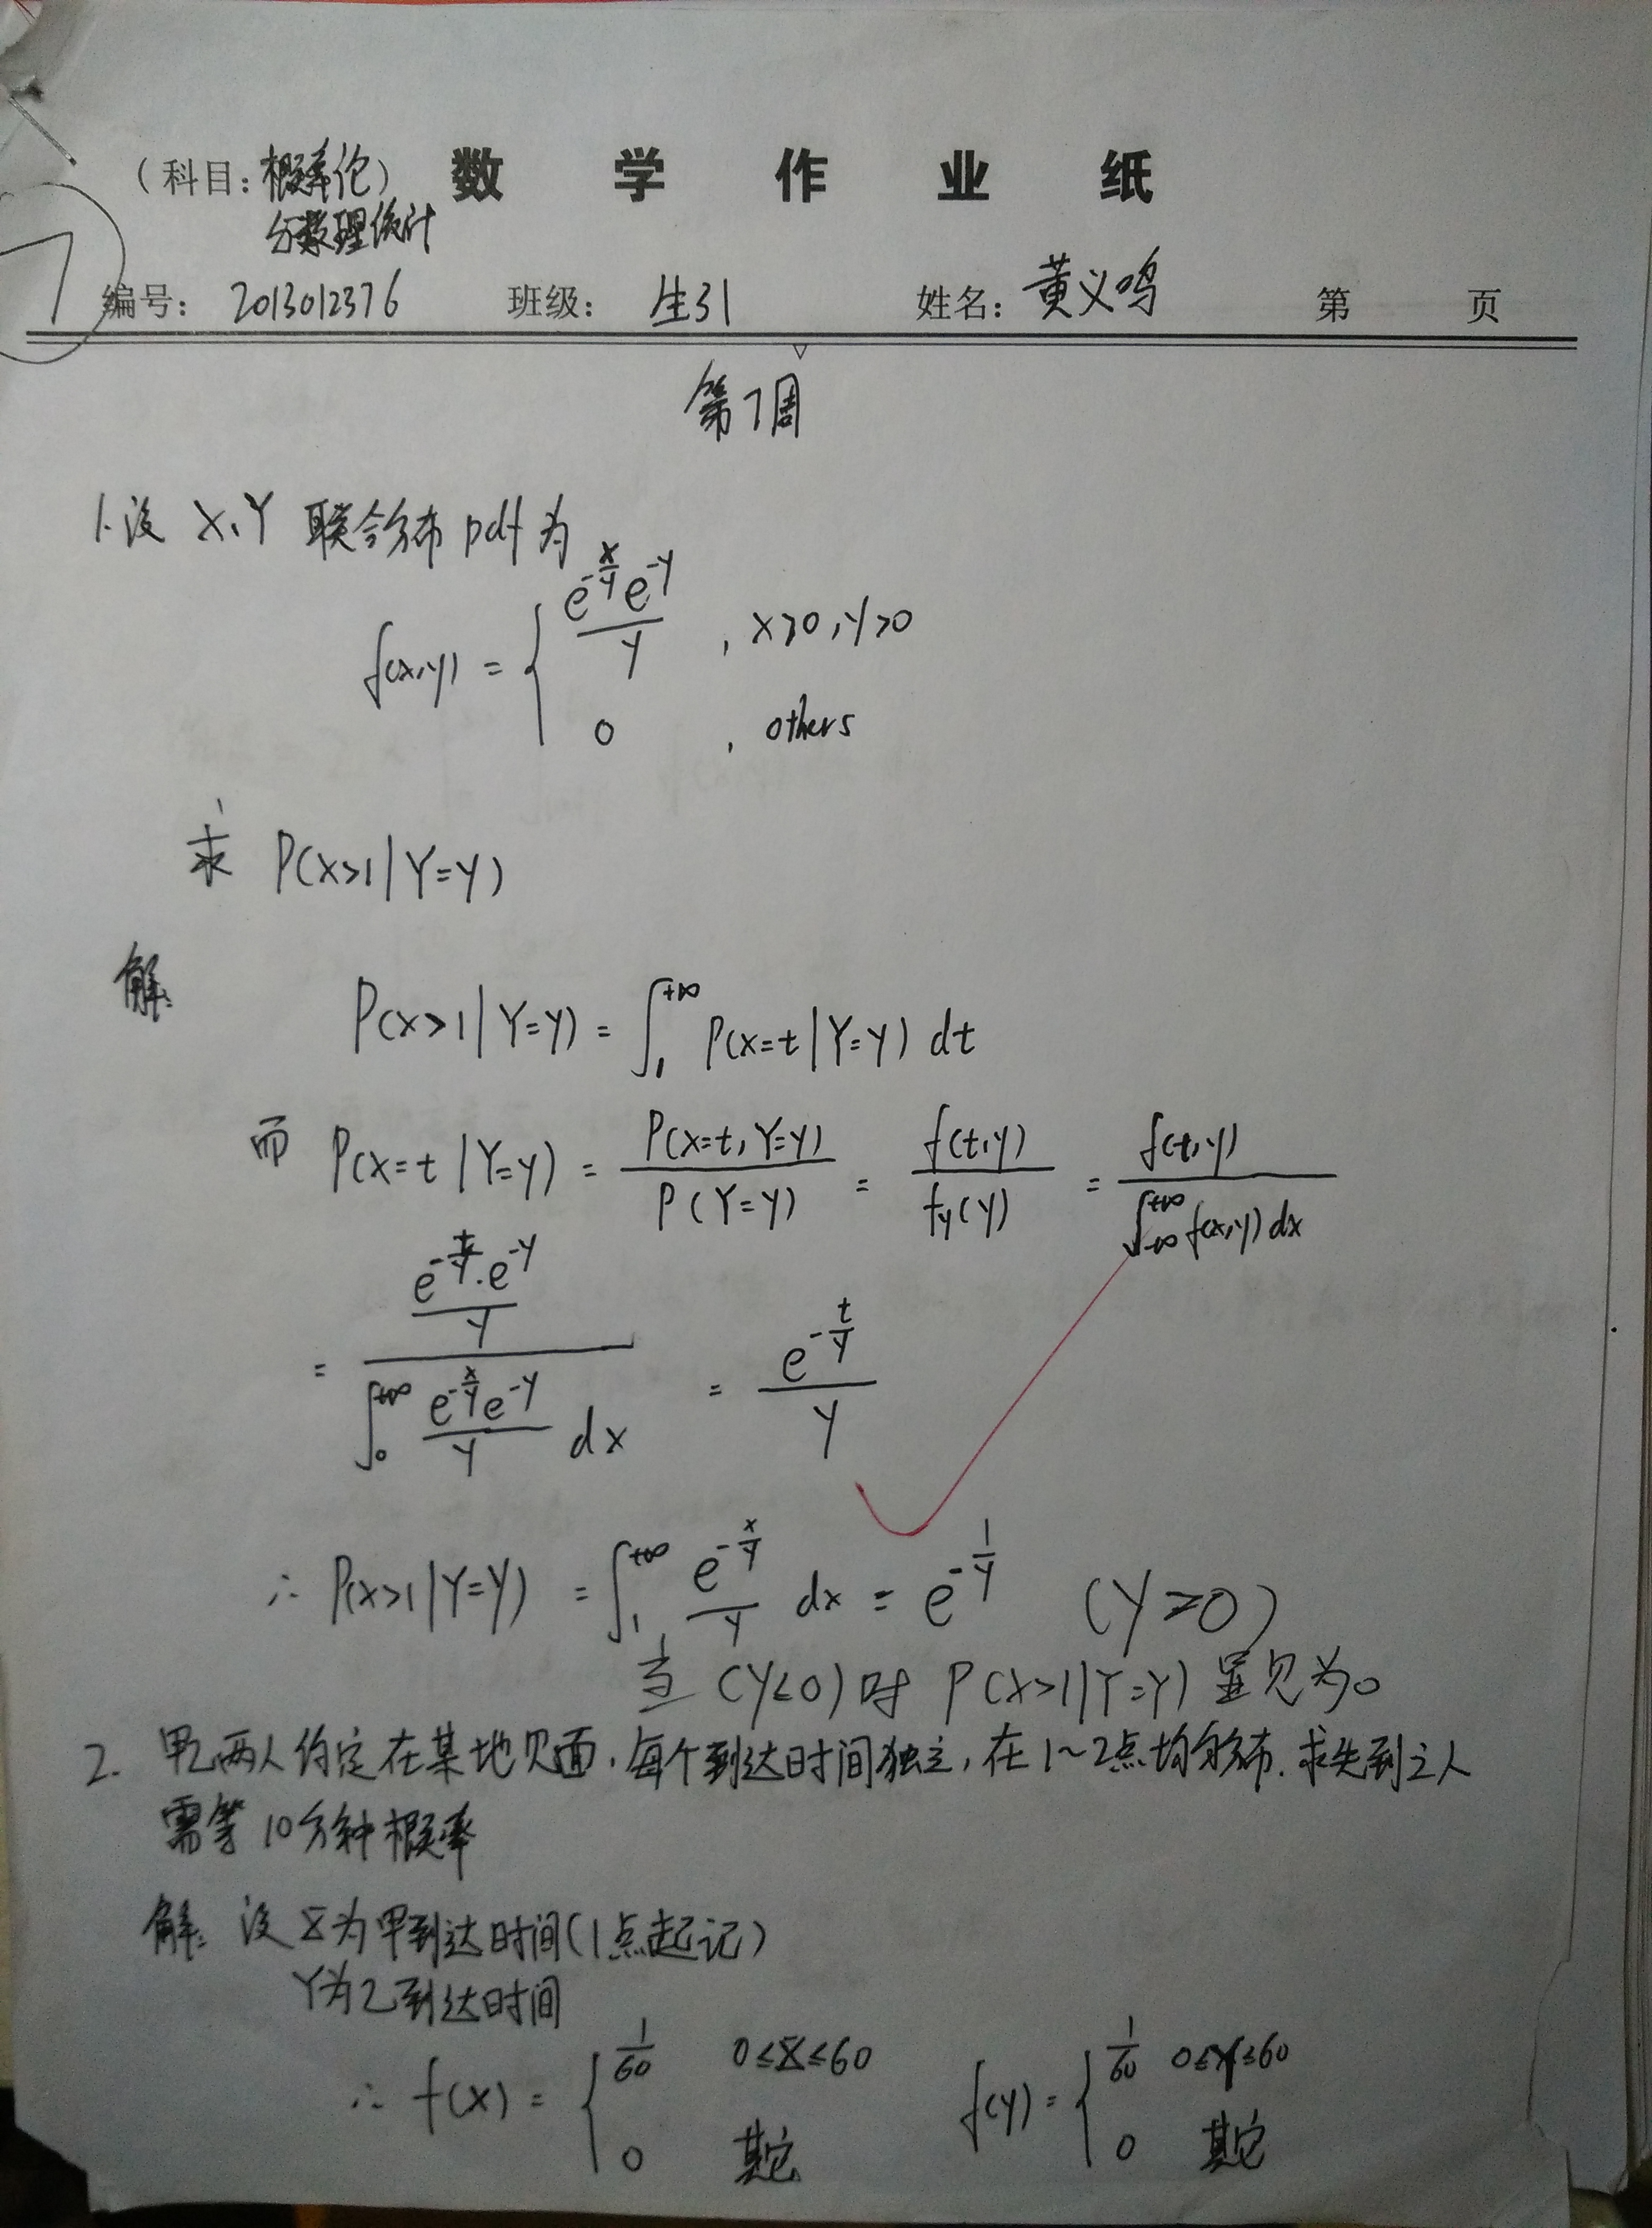 (科目:概率论) 数学作业纸
与数理统计
7
编号: 2013012376 班级: 生31 姓名: 黄义鸣 第 页
第7周
1.设 X,Y 联合分布pdf为
f(x,y) = { e^{-x/y}e^{-y}/y , x>0,y>0
0 , others
求 P(X>1|Y=y)
解:
P(X>1|Y=y) = ∫_1^{+∞} P(X=t|Y=y) dt
而 P(X=t|Y=y) = P(X=t,Y=y)/P(Y=y) = f(t,y)/f_Y(y) = f(t,y)/∫_{-∞}^{+∞} f(x,y)dx
= (e^{-t/y}·e^{-y}/y)/(∫_0^{+∞} e^{-x/y}e^{-y}/y dx) = e^{-t/y}/y
∴ P(X>1|Y=y) = ∫_1^{+∞} e^{-x/y}/y dx = e^{-1/y} (y>0)
当(y≤0)时 P(X>1|Y=y) 显见为0
2. 甲乙两人约定在某地见面,每个到达时间独立,在1~2点均匀分布.求先到之人
需等10分钟概率
解: 设X为甲到达时间(1点起记)
Y为乙到达时间
∴ f(x) = { 1/60 0≤X≤60 f(y) = { 1/60 0≤Y≤60
0 其它 0 其它